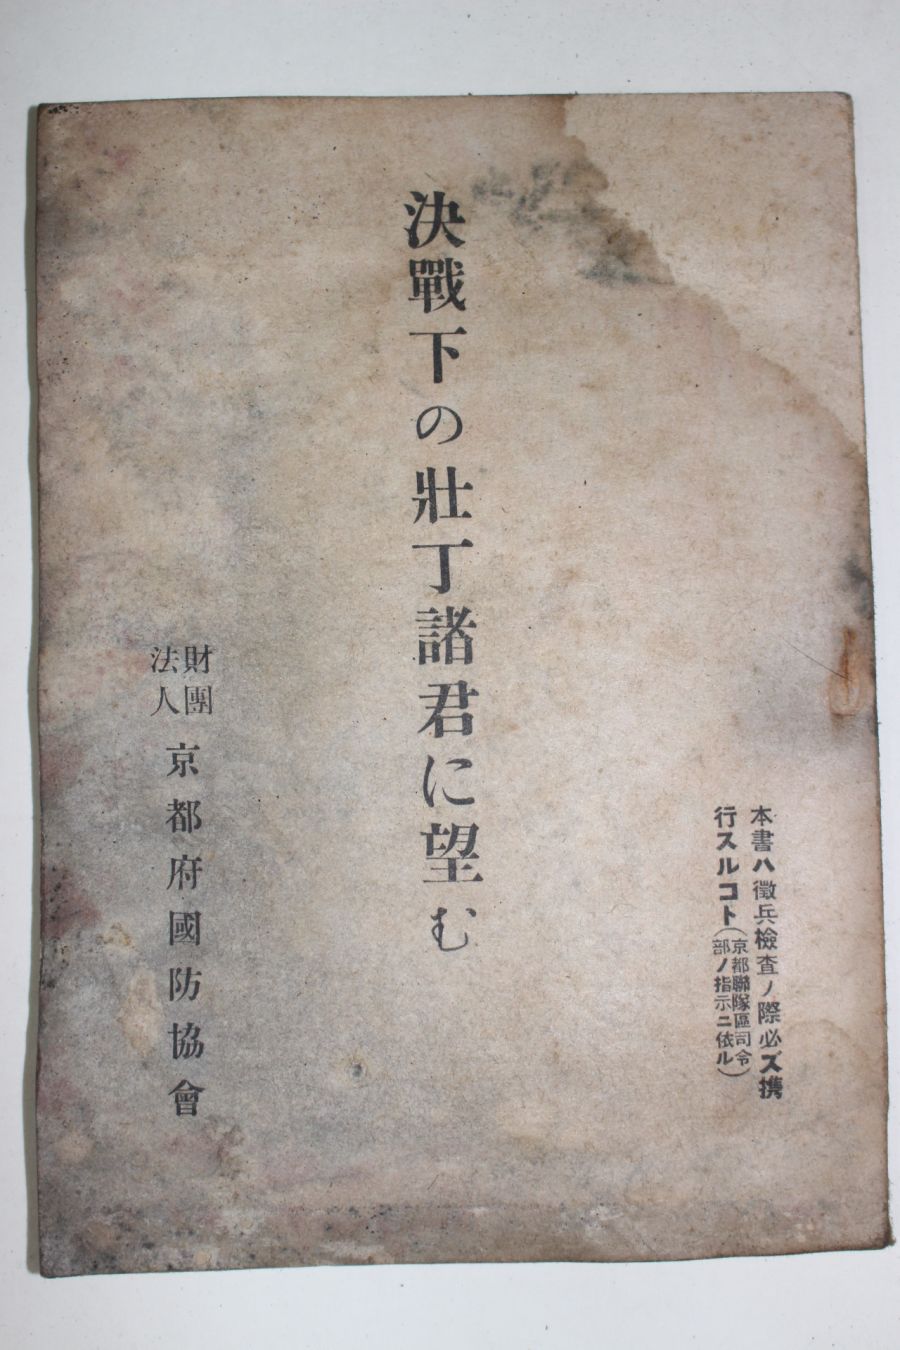 本書ハ徵兵檢査ノ際必ズ携
行スルコト(京都聯隊區司令
部ノ指示ニ依ル)
決戰下の壯丁諸君に望む
財團
法人
京都府國防協會